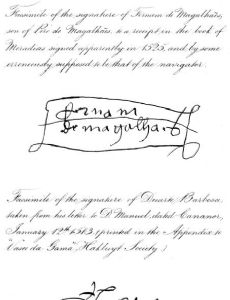 Facsimile of the signature of Fernam de Magalhãis,
son of Pero de Magalhãis, to a receipt in the book of
Moradias signed apparently in 1525, and by some
erroneously supposed to be that of the navigator.
fernam
de magalhais
Facsimile of the signature of Duarte Barbosa,
taken from his letter to D. Manuel, dated Cananor,
January 12th 1513 (printed in the Appendix to
"Vasco da Gama" Hakluyt Society.)